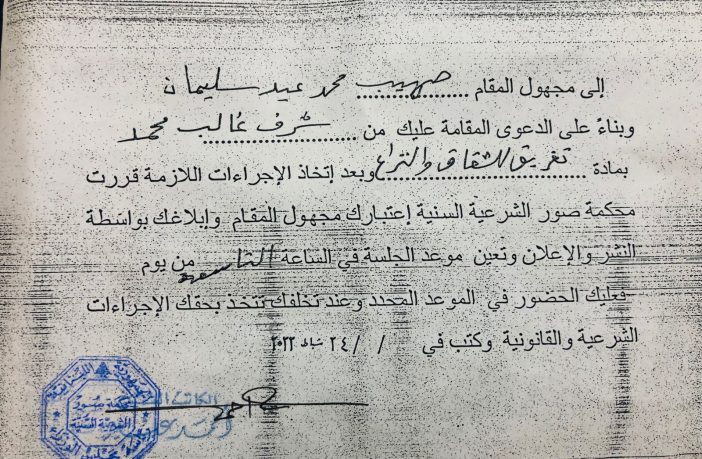 إلى مجهول المقام صهيب محمد عيد سليمان
وبناءً على الدعوى المقامة عليك من شرف غالب محمد
بمادة تفريق للشقاق والنزاع وبعد إتخاذ الإجراءات اللازمة قررت
محكمة صور الشرعية السنية إعتبارك مجهول المقام وإبلاغك بواسطة
النشر والإعلان وتعين موعد الجلسة في الساعة التاسعة من يوم
فعليك الحضور في الموعد المحدد وعند تخلفك تتخذ بحقك الإجراءات
الشرعية والقانونية وكتب في / / ٢٤ شباط ٢٠٢٢
الجمهورية اللبنانية
محكمة صور
الشرعية السنية
الكاتب
أحمد